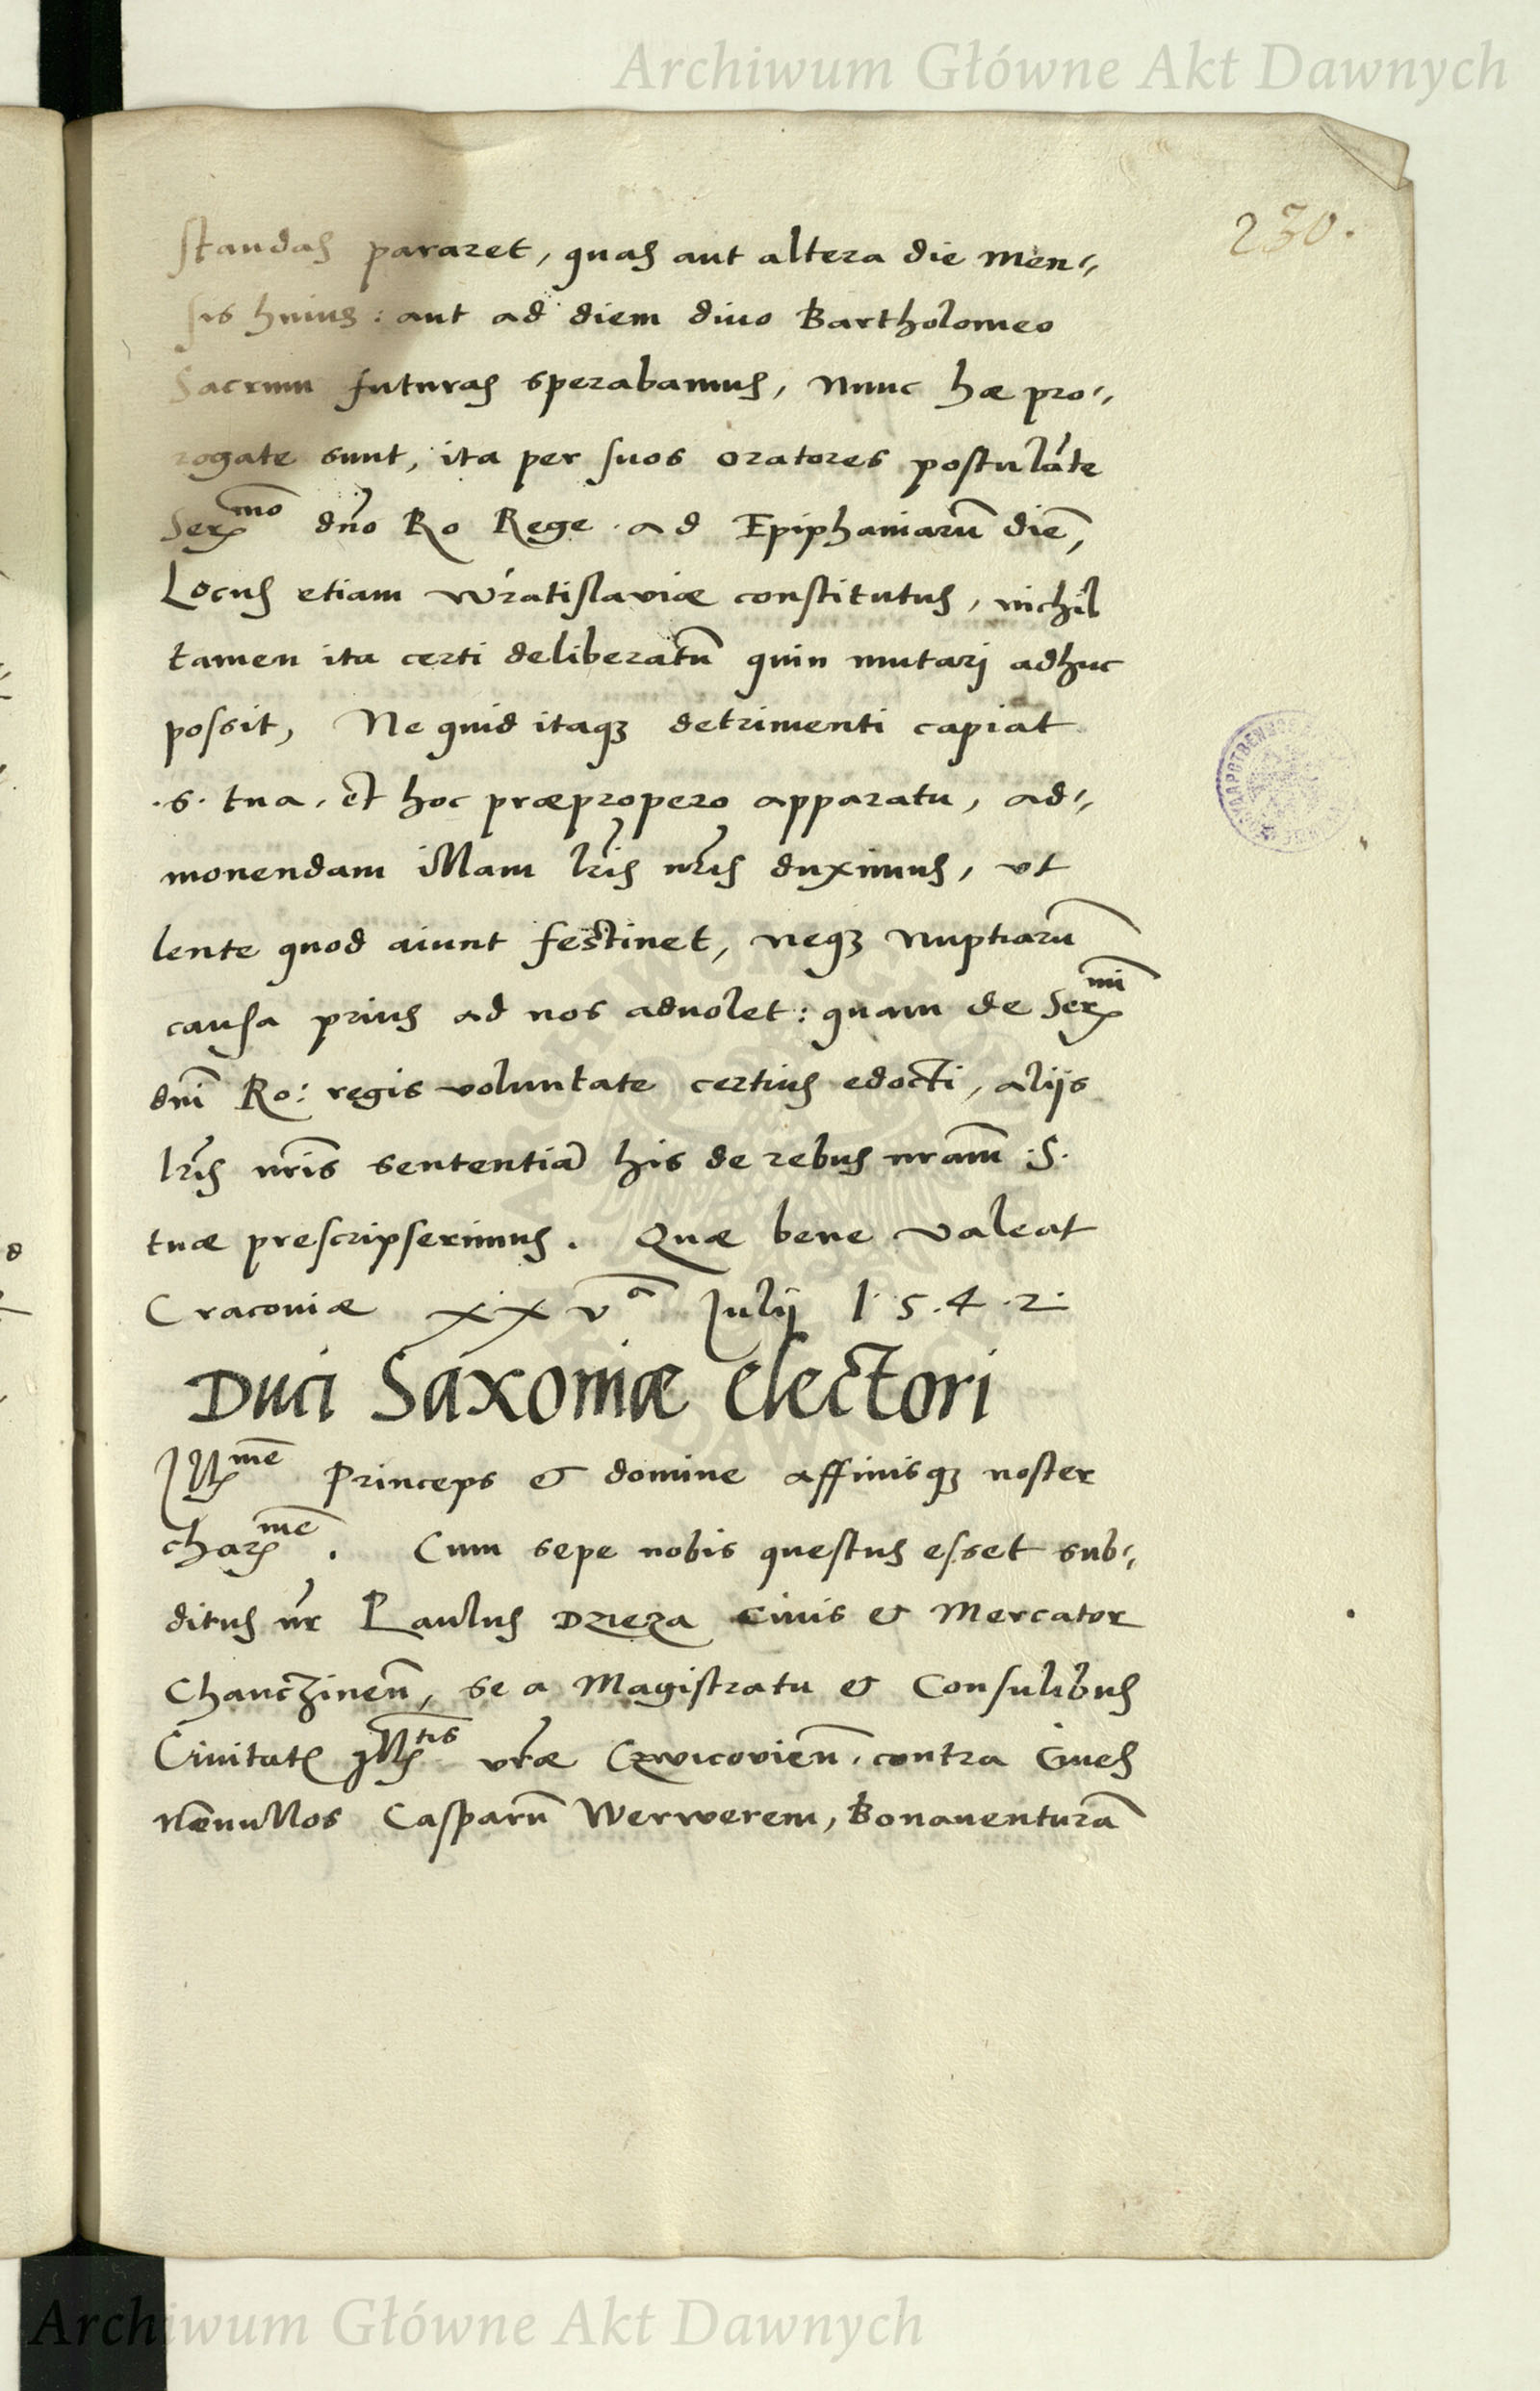 Archiwum Główne Akt Dawnych
230.
standas pararet, quas aut altera die Men-
sis huius: aut ad diem diuo Bartholomeo
Sacrum futuras sperabamus, Nunc hæ pro-
rogate sunt, ita per suos oratores postulãte
Ser^mo dño Ro Rege ad Epiphaniarũ diẽ,
Locus etiam Wratislaviæ constitutus, nichil
tamen ita certi deliberatũ quin mutarj adhuc
possit, Ne quid itaq3 detrimenti capiat
.S. tua, et hoc præpropero apparatu, ad-
monendam illam lris nris duximus, vt
lente quod aiunt festinet, neq3 nuptiarũ
causa prius ad nos aduolet: quam de Ser^mi
dni Ro: regis voluntate certius edocti, alijs
lris nris sententiã his de rebus nram .S.
tuæ prescripserimus. Quæ bene valeat
Cracouiæ xxv^a Julij 1.5.4.2.
Duci Saxoniæ electori
Ill^me Princeps & domine affinisq3 noster
char^me. Cum sepe nobis questus esset sub-
ditus nr Paulus Dzieza Ciuis & Mercator
Chanczineñ, se a Magistratu & Consulibus
Ciuitatis Ill^tis vræ Czwicovieñ. contra Ciues
nõnullos Casparũ Werwerem, Bonauenturã
Archiwum Główne Akt Dawnych